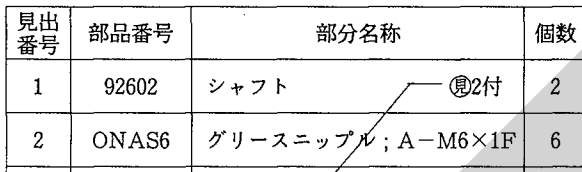 見出番号 部品番号 部分名称 個数
1 92602 シャフト ㊲2付 2
2 ONAS6 グリースニップル；A－M6×1F 6